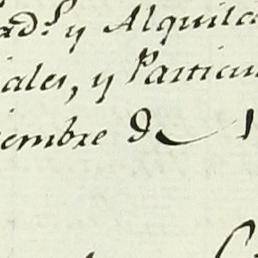 ad.ˢ y Alquila
iales, y Particu
iembre de 1